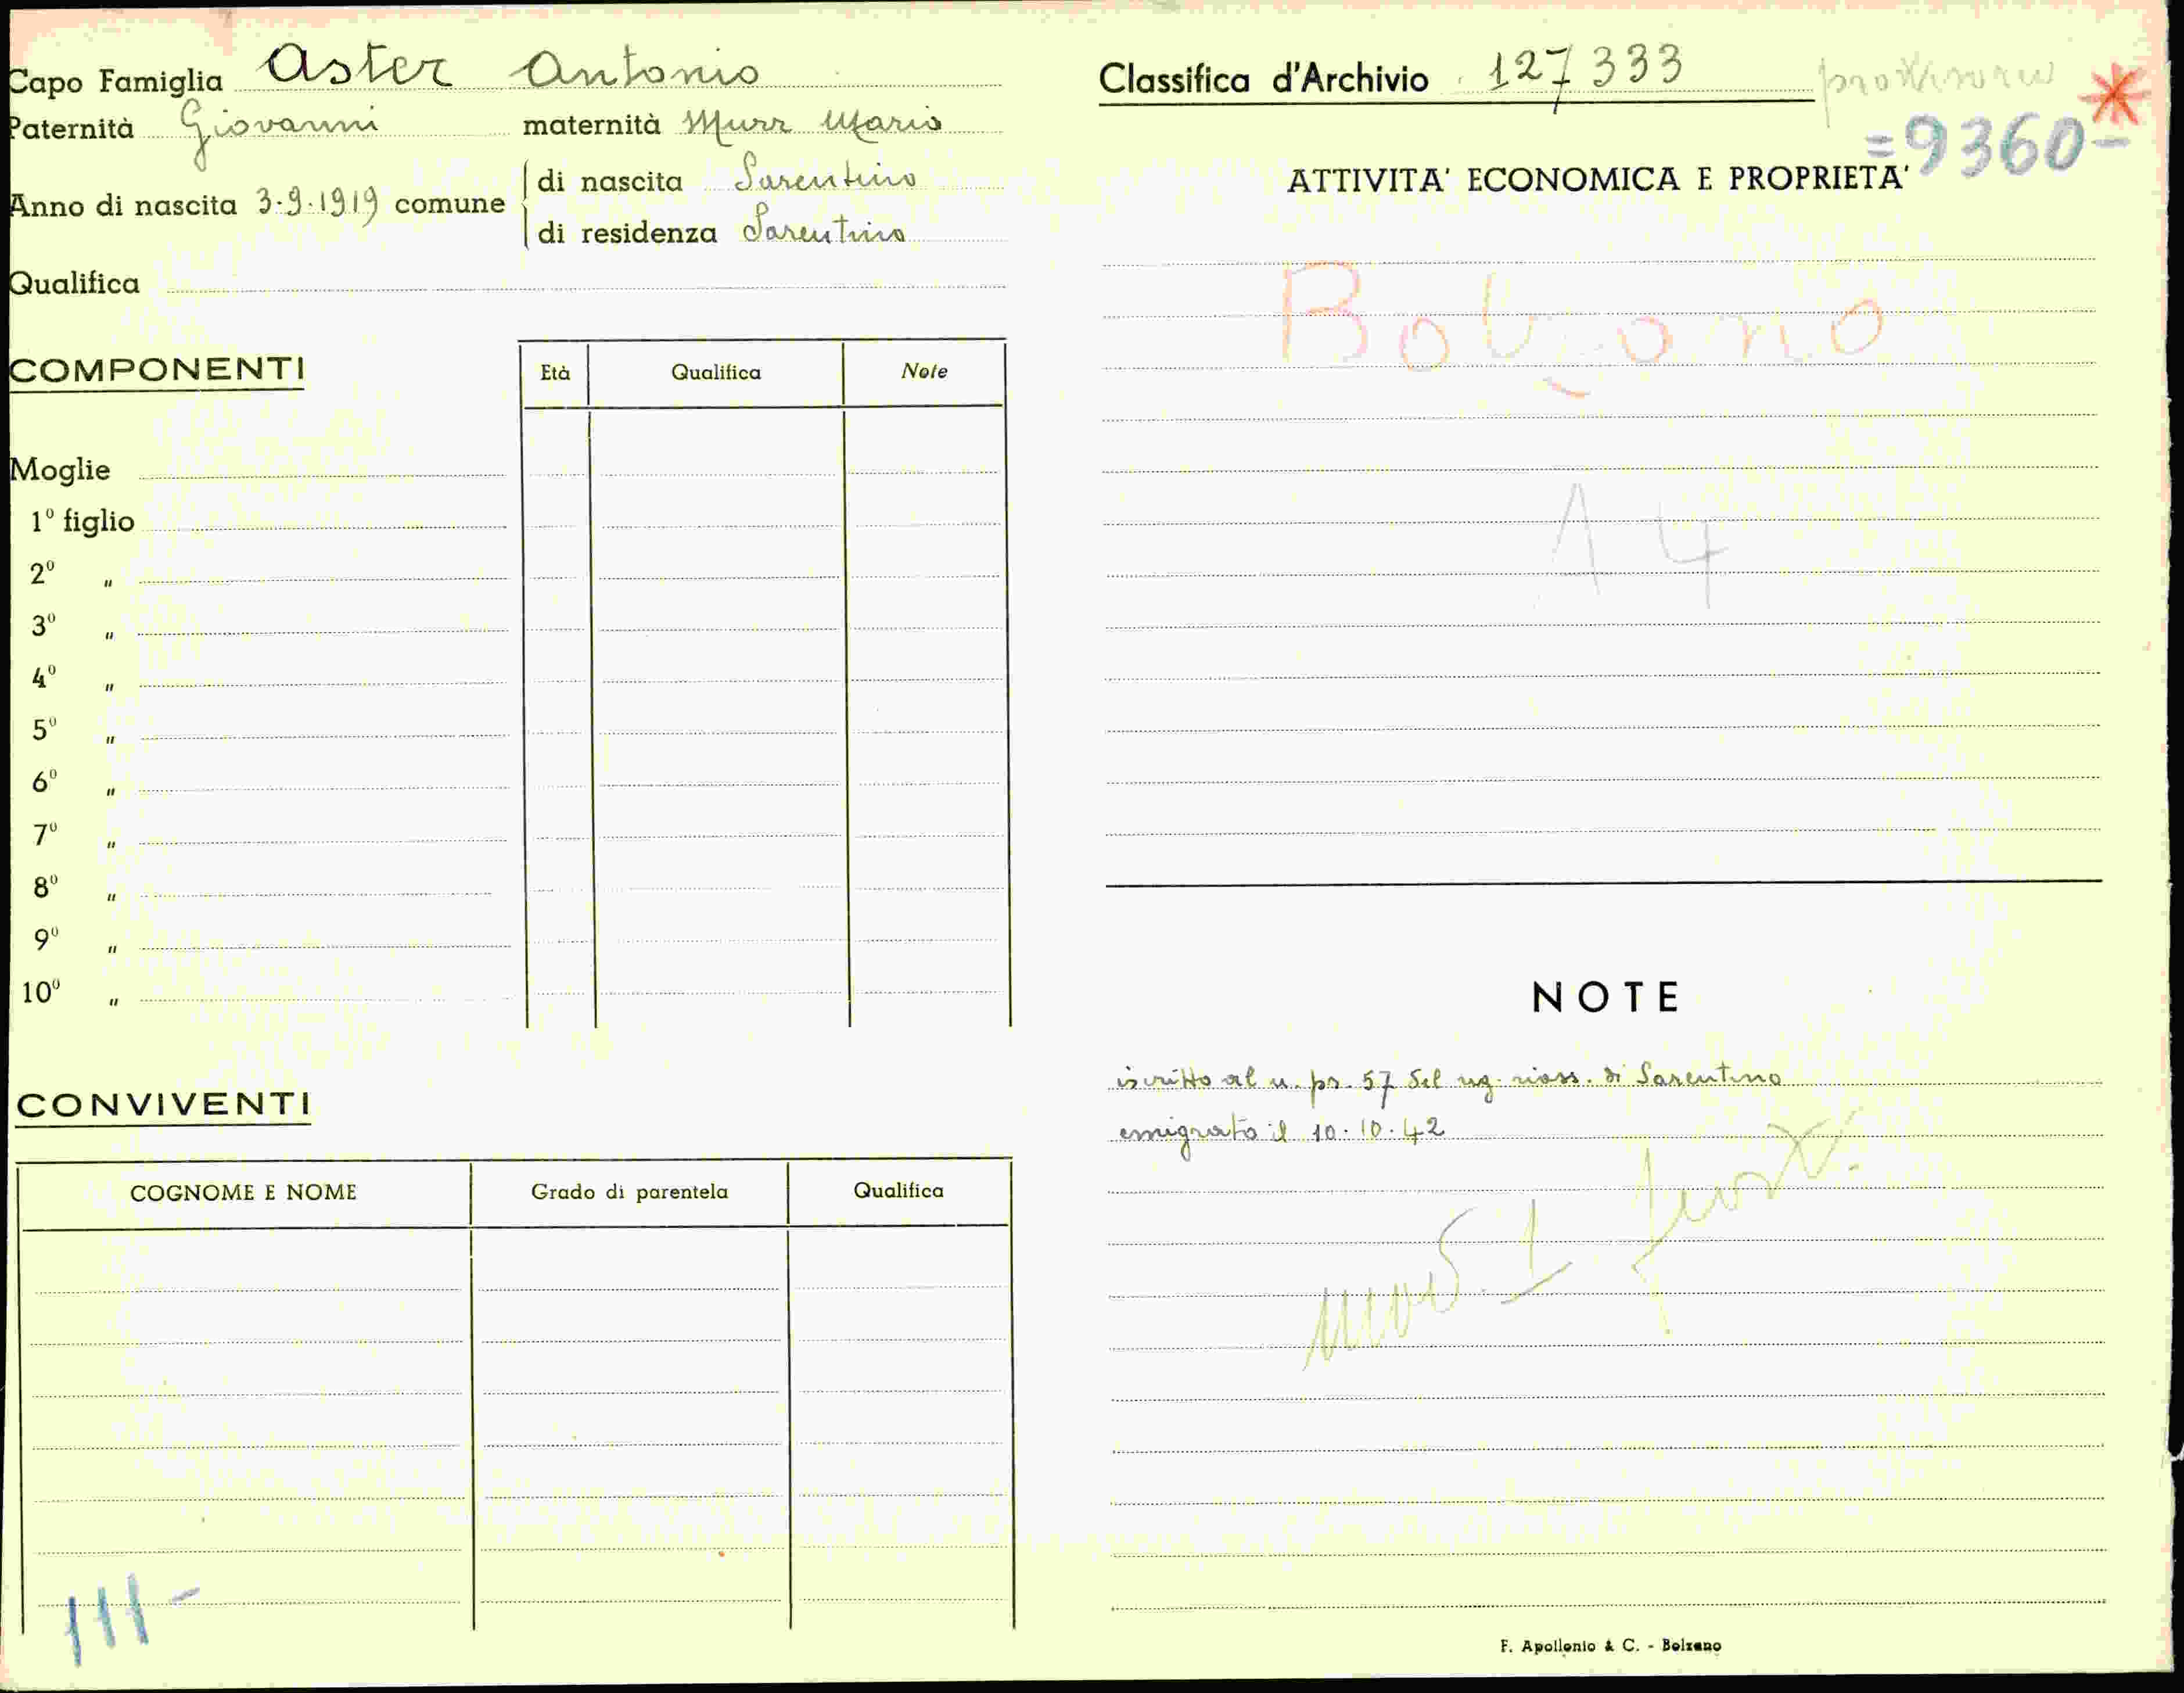 Capo Famiglia Aster Antonio
Paternità Giovanni maternità Murr Maria
Anno di nascita 3.9.1919 comune
di nascita Sarentino
di residenza Sarentino
Qualifica
COMPONENTI
Età Qualifica Note
Moglie
1º figlio
2º "
3º "
4º "
5º "
6º "
7º "
8º "
9º "
10º "
CONVIVENTI
COGNOME E NOME Grado di parentela Qualifica
111-
Classifica d'Archivio 127333
=9360-
ATTIVITA' ECONOMICA E PROPRIETA'
Bolzano
14
NOTE
iscritto al n. pr. 57 del ug. riass. di Sarentino
emigrato il 10.10.42
mod. 1
F. Apollonio & C. - Bolzano